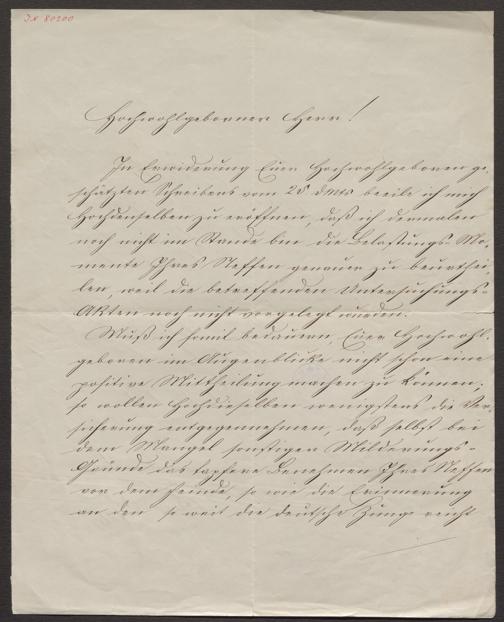 IN 80200
Hochwohlgeborner Herr!
In Erwiderung Euer Hochwohlgeboren ge-
schätzten Schreibens vom 25 dMts beeile ich mich
Hochdenselben zu eröffnen, daß ich dermalen
noch nicht im Stande bin die Belastungs-Mo-
mente Ihres Neffen genauer zu beurthei-
len, weil die betreffenden Untersuchungs-
Akten noch nicht vorgelegt wurden.
Muß ich somit bedauern, Euer Hochwohl-
geboren im Augenblicke nicht schon eine
positive Mittheilung machen zu können;
so wollen Hochdieselben wenigstens die Ver-
sicherung entgegennehmen, daß selbst bei
dem Mangel sonstigen Milderungs-
Gründe das tapfere Benehmen Ihres Neffen
vor dem Feinde, so wie die Erinnerung
an den so weit die deutsche Zunge reicht